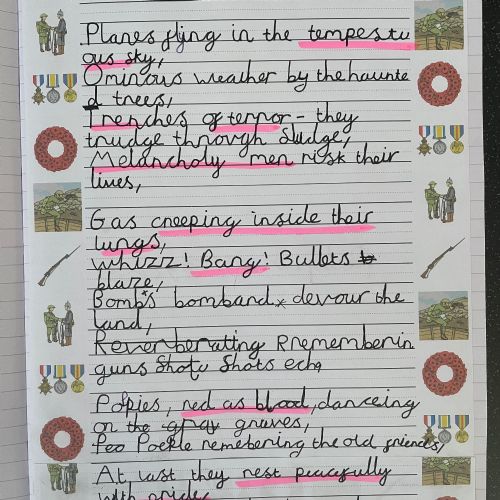 Planes flying in the tempestu
ous sky,
Ominous weather by the haunte
d trees,
Trenches of terror - they
trudge through sludge,
Melancholy men risk their
lives,
Gas creeping inside their
lungs,
whizz! Bang! Bullets
blaze,
Bombs bombard, devour the
land,
Reverberating Rememberin
guns Shots echo
Popies, red as blood, danceing
on the graves,
Peo Poeple remebering the old friends,
At last they rest peacefully
with pride,